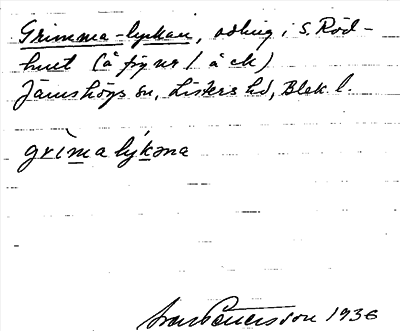 Grimma-lyckan, odling i S. Röd-
huet (å fig nr 1 å ck)
Jämshögs sn, Listers hd, Blek l.
grìmalýkəna
1936